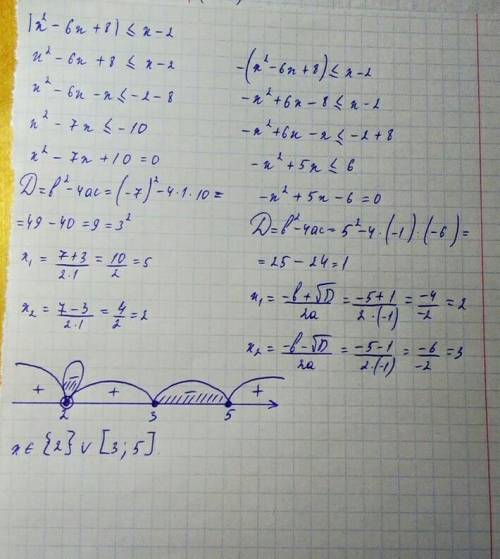 |x² - 6x + 8| ≤ x - 2
x² - 6x + 8 ≤ x - 2
x² - 6x - x ≤ -2 - 8
x² - 7x ≤ -10
x² - 7x + 10 = 0
D = b² - 4ac = (-7)² - 4·1·10 =
= 49 - 40 = 9 = 3²
x₁ = (7+3)/(2·1) = 10/2 = 5
x₂ = (7-3)/(2·1) = 4/2 = 2
-(x² - 6x + 8) ≤ x - 2
-x² + 6x - 8 ≤ x - 2
-x² + 6x - x ≤ -2 + 8
-x² + 5x ≤ 6
-x² + 5x - 6 = 0
D = b² - 4ac = 5² - 4·(-1)·(-6) =
= 25 - 24 = 1
x₁ = (-b + √D)/(2a) = (-5+1)/(2·(-1)) = -4/-2 = 2
x₂ = (-b - √D)/(2a) = (-5-1)/(2·(-1)) = -6/-2 = 3
+ - + - +
2 3 5
x ∈ {2} ∪ [3; 5]